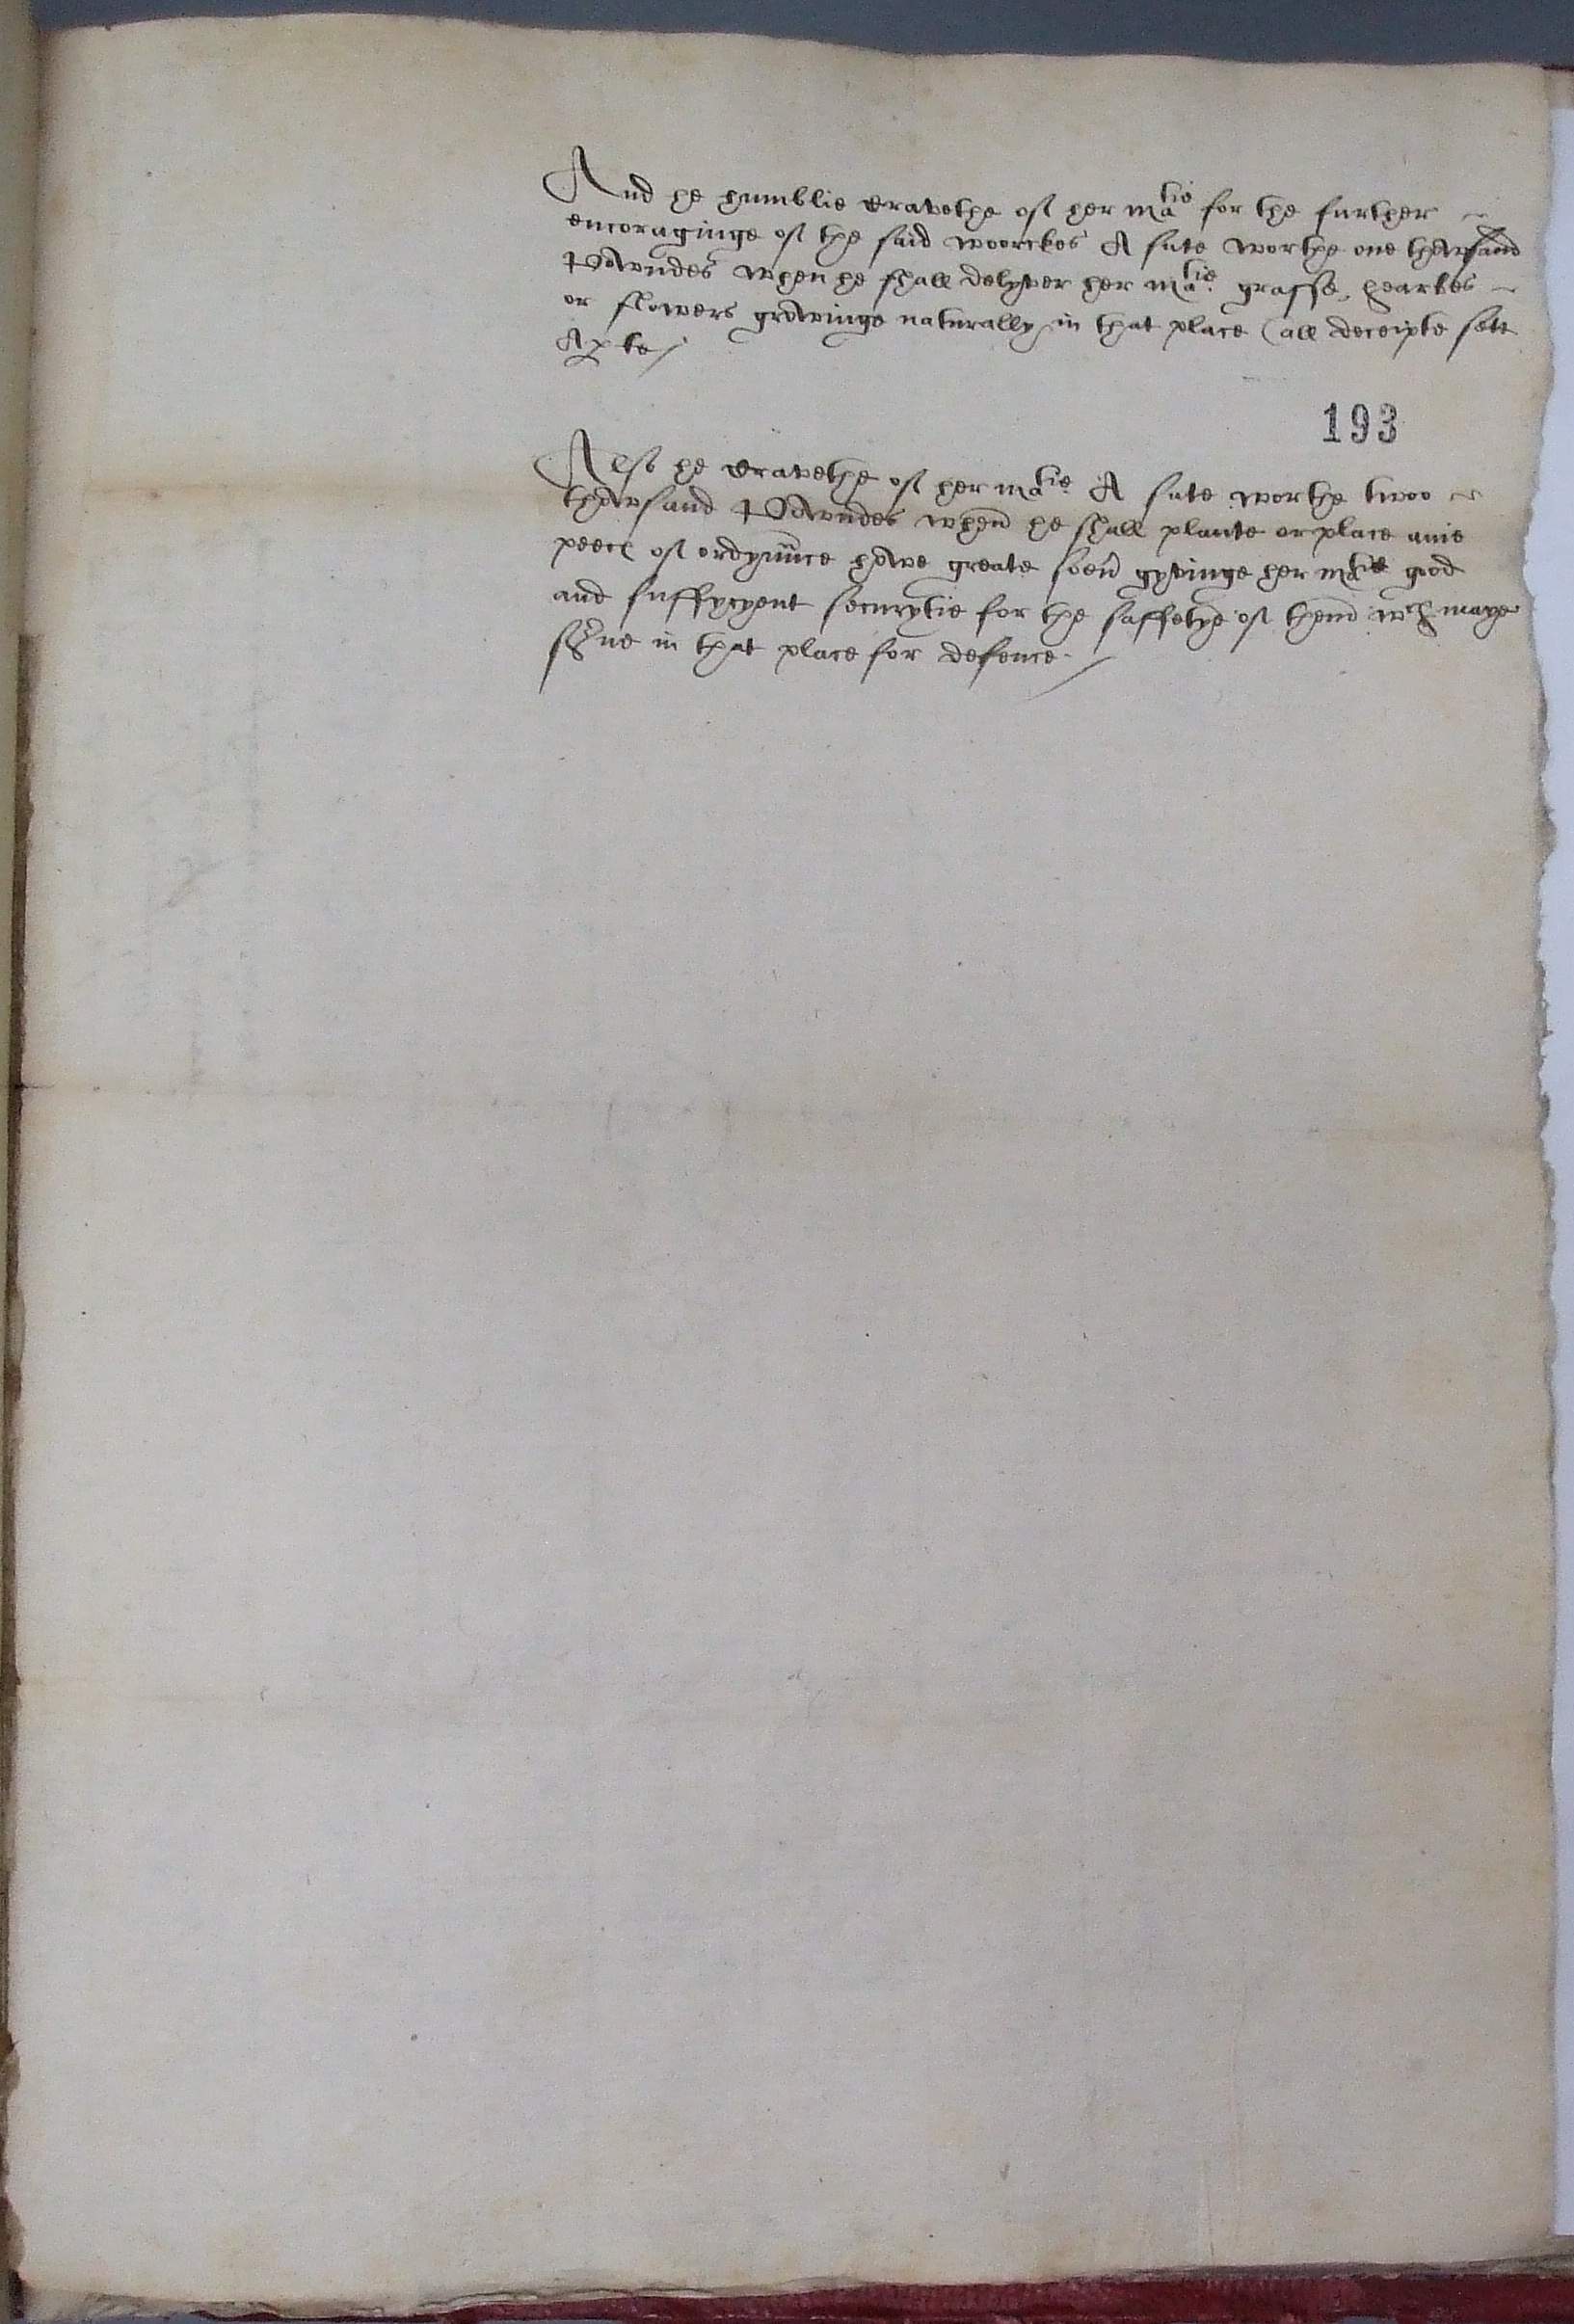 And he humblie cravethe of her ma^tie for the further
encoraginge of the said woorckes A sute worthe one thowsand
Powndes when he shall delyver her ma^tie. grasse, hearbes
or flowers growinge naturally in that place (all deceipte sett
Aparte/
193
Also he cravethe of her ma^tie. A sute worthe twoo
thowsand Powndes when he shall plante or place anie
peece of ordynnce howe greate soeu gyvinge her ma^tie good
and suffycyent securytie for the saffetye of them w^ch maye
serue in that place for defence./